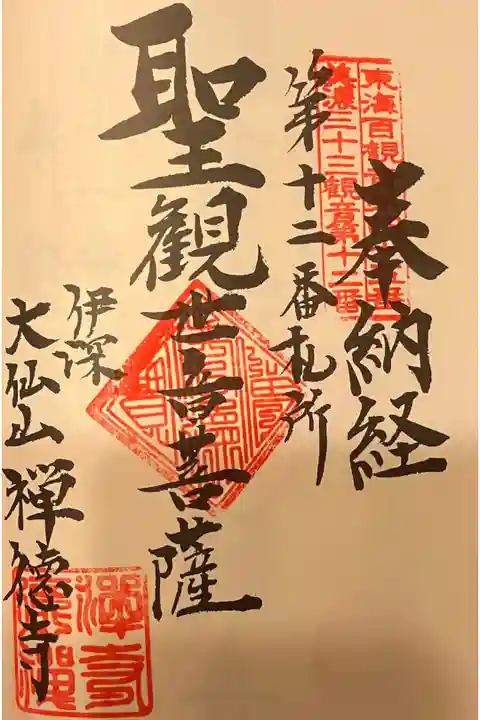 奉納経
東海百観音
美濃三十三観音第十二番
第十二番札所
聖観世音菩薩
伊深
大仙山 禅徳寺